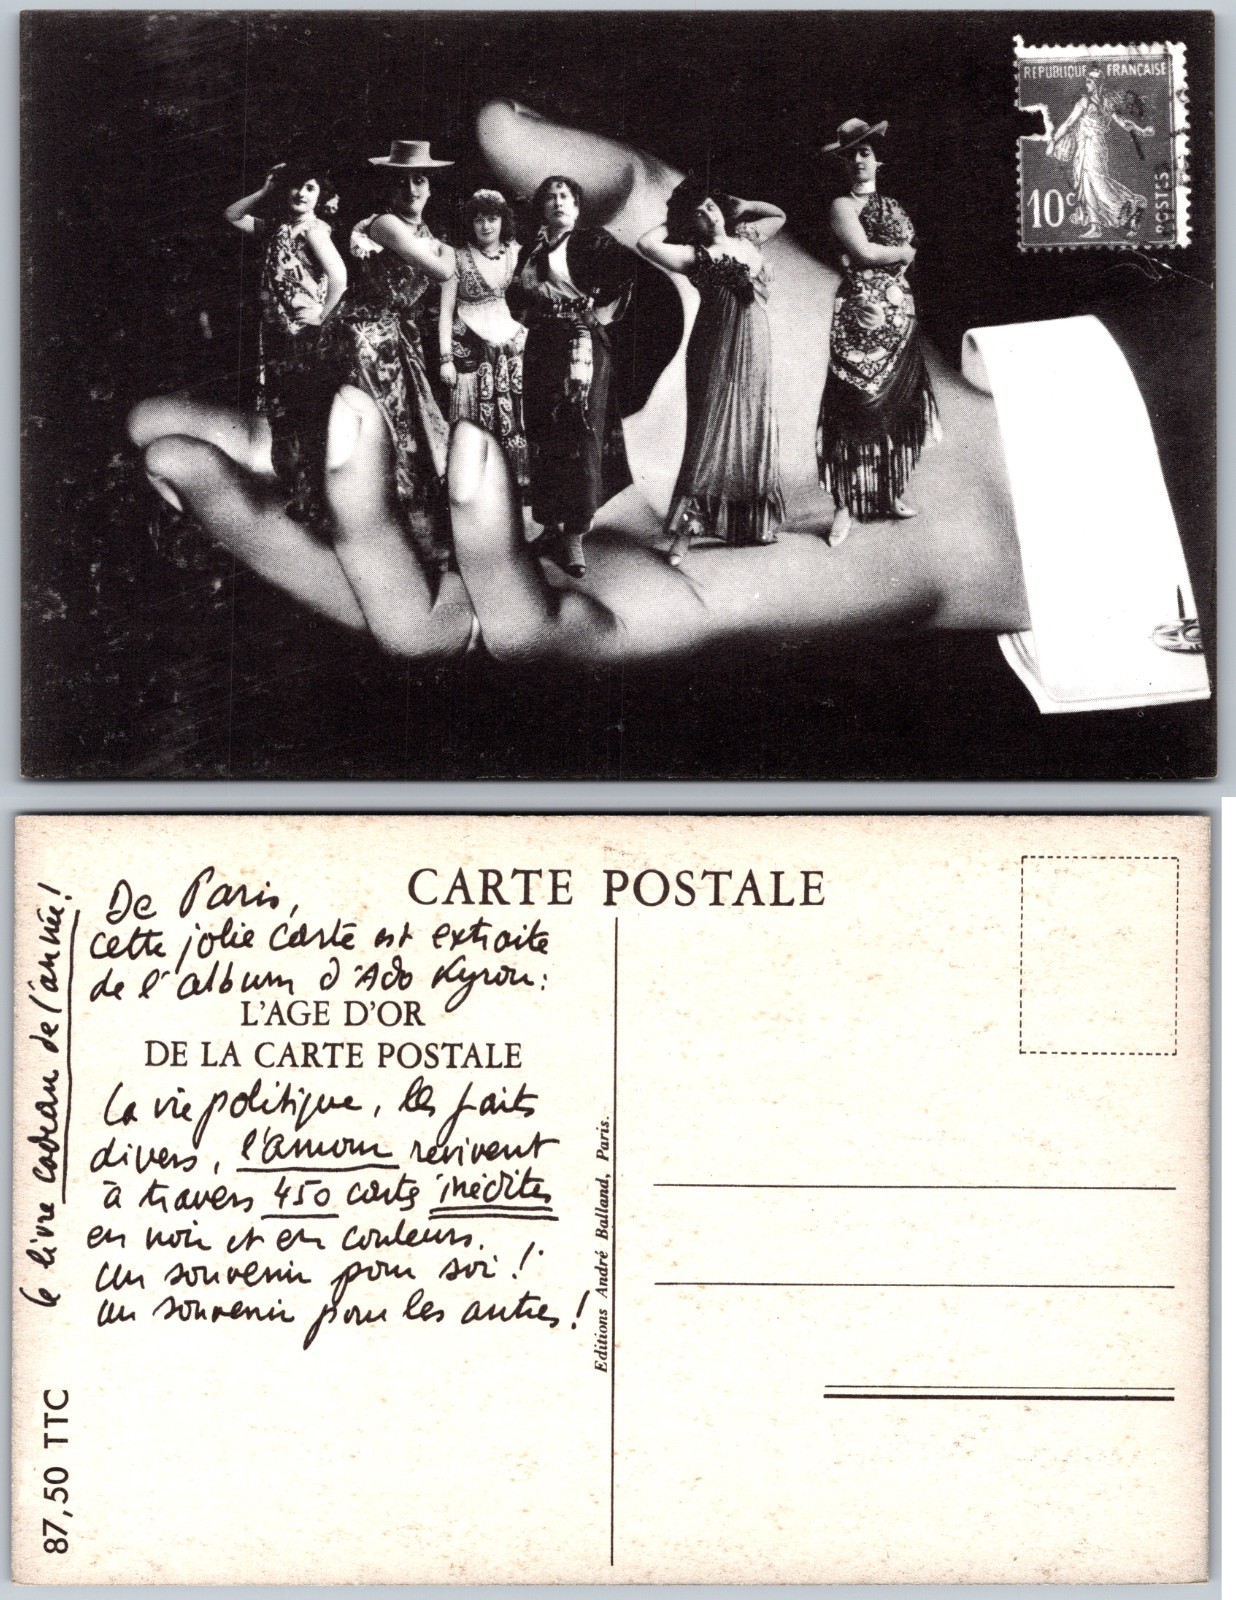 REPUBLIQUE FRANCAISE
10c
POSTES
CARTE POSTALE
De Paris,
cette jolie carte est extraite
de l'album d'Ado Kyrou:
L'AGE D'OR
DE LA CARTE POSTALE
La vie politique, les faits
divers, l'amour revivent
à travers 450 cartes inédites
en noir et en couleurs.
un souvenir pour soi!
un souvenir pour les autres!
le livre cadeau de l'année!
87,50 TTC
Editions André Balland, Paris.